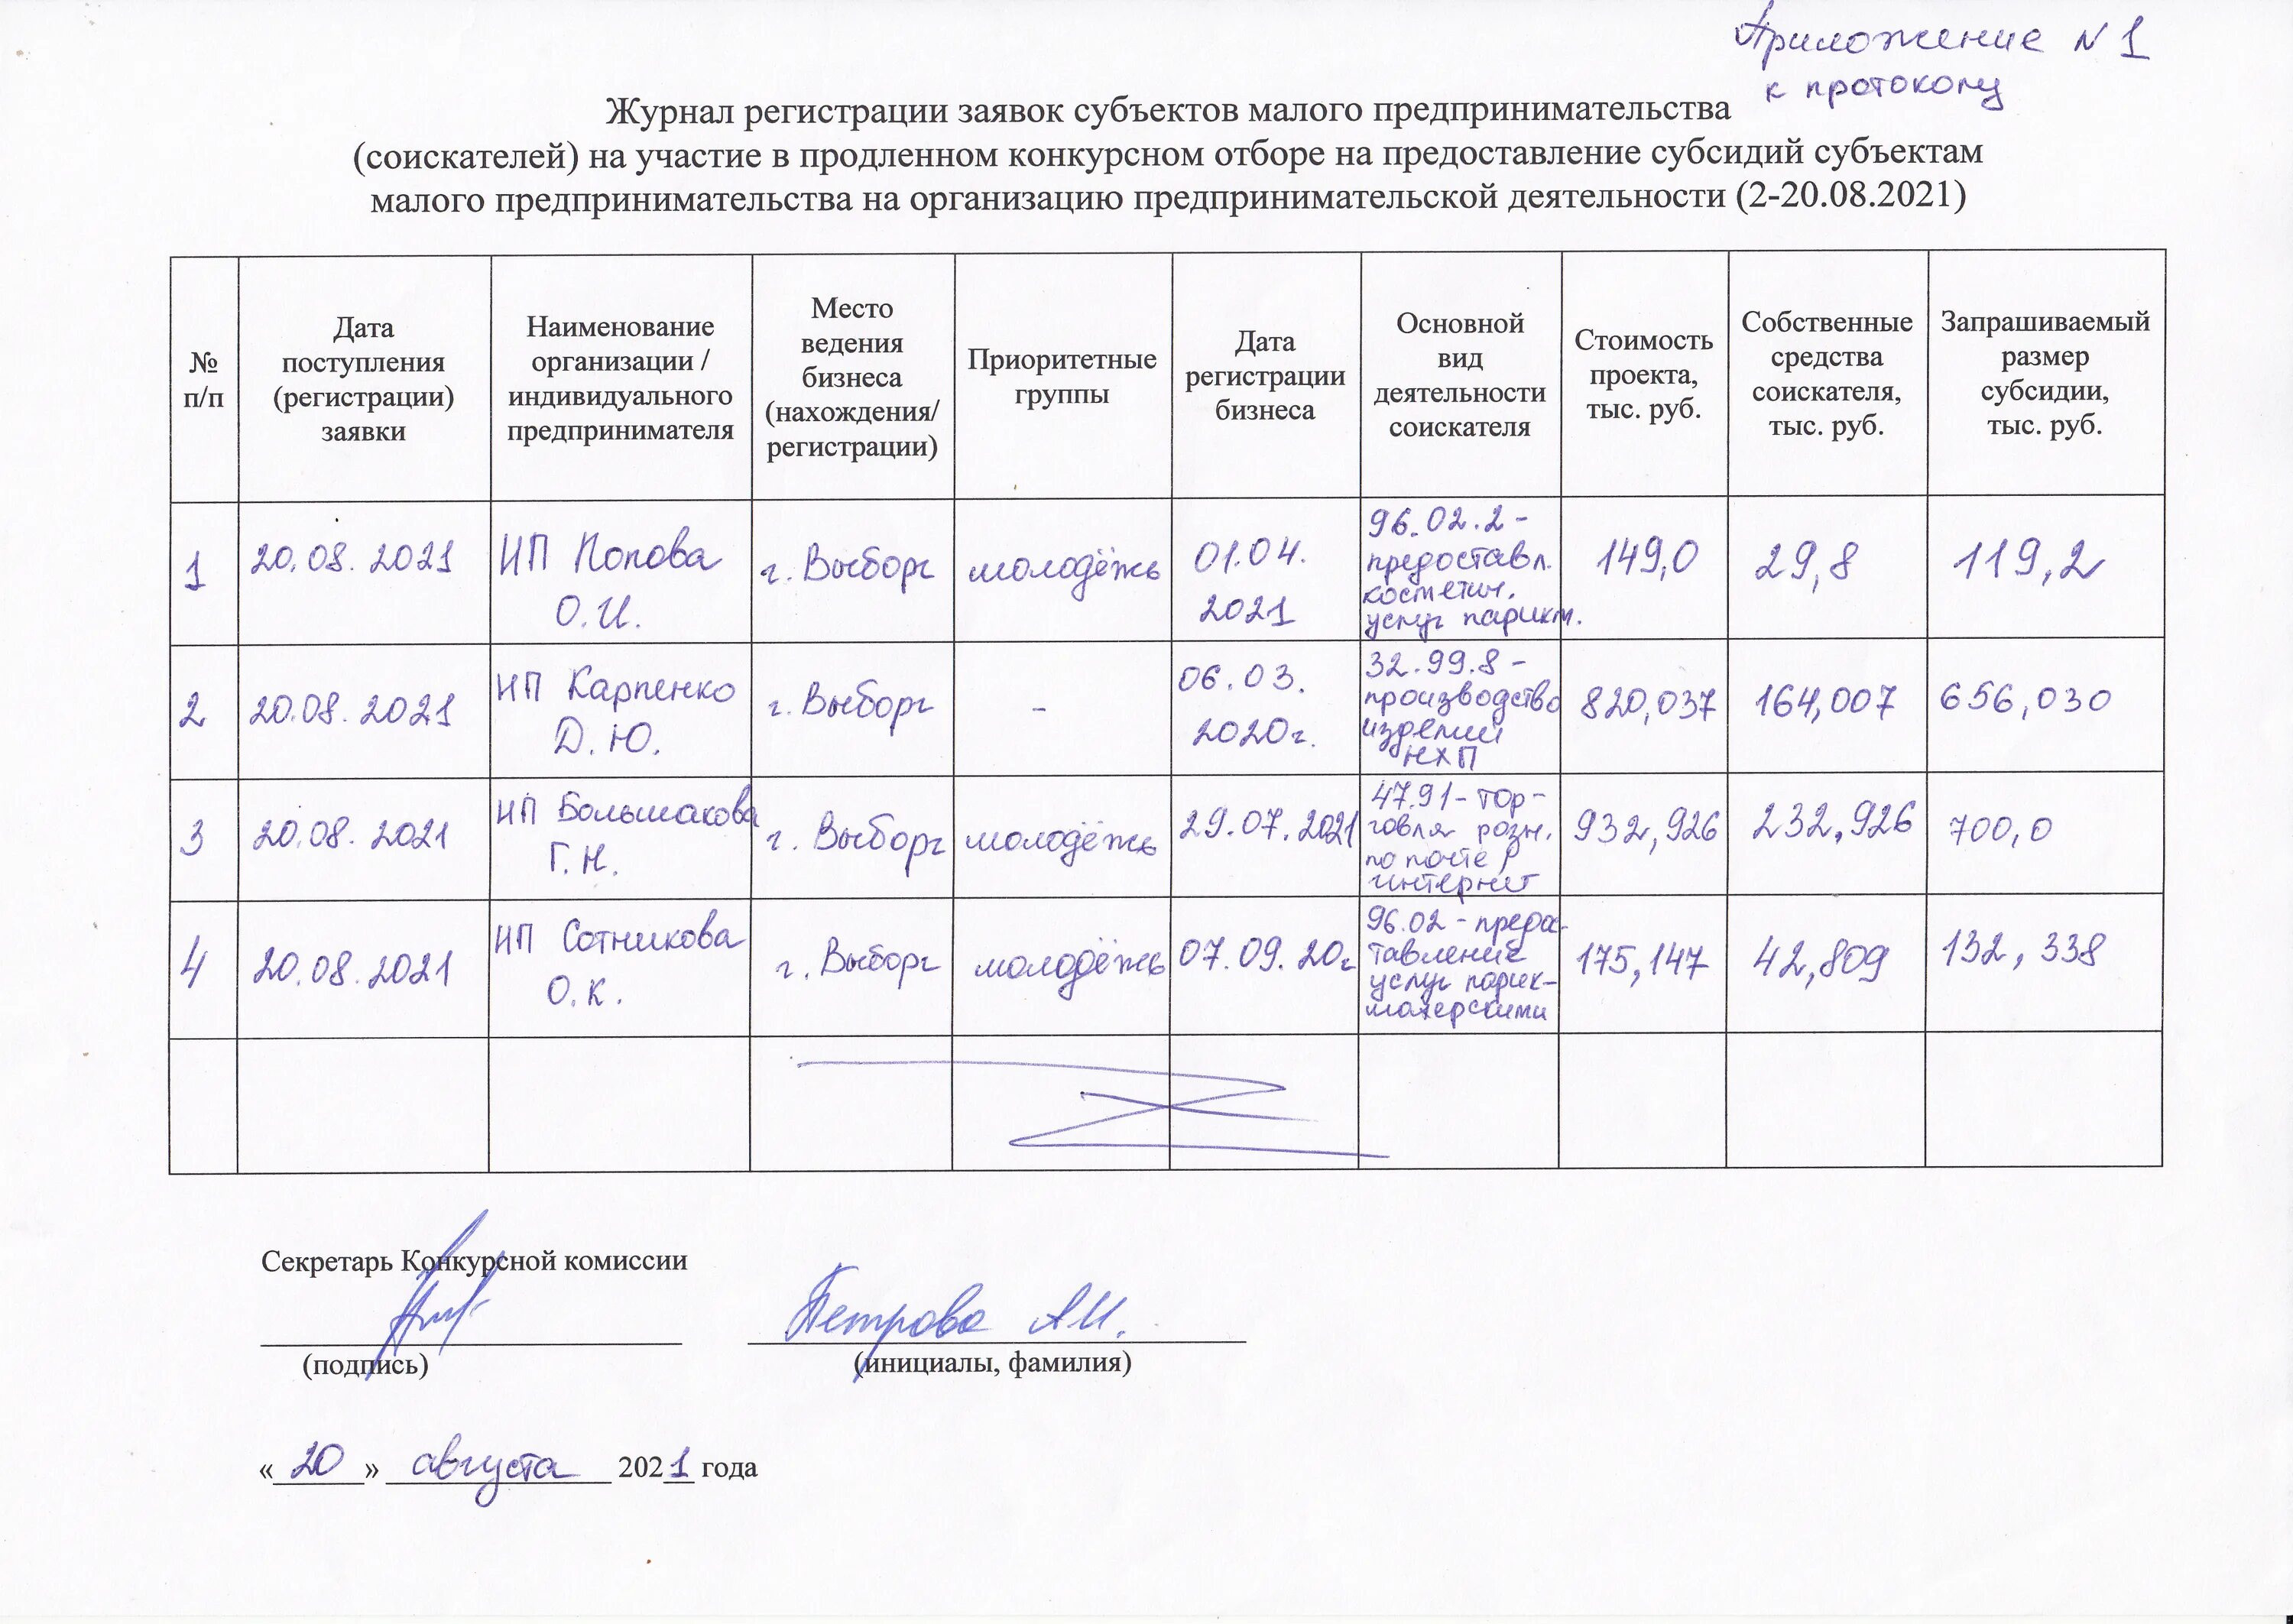 Приложение N 1
к протоколу
Журнал регистрации заявок субъектов малого предпринимательства
(соискателей) на участие в продленном конкурсном отборе на предоставление субсидий субъектам
малого предпринимательства на организацию предпринимательской деятельности (2-20.08.2021)
№
п/п
Дата
поступления
(регистрации)
заявки
Наименование
организации /
индивидуального
предпринимателя
Место
ведения
бизнеса
(нахождения/
регистрации)
Приоритетные
группы
Дата
регистрации
бизнеса
Основной
вид
деятельности
соискателя
Стоимость
проекта,
тыс. руб.
Собственные
средства
соискателя,
тыс. руб.
Запрашиваемый
размер
субсидии,
тыс. руб.
1
20.08.2021
ИП Попова
О.И.
г. Выборг
молодёжь
01.04.
2021
96.02.2 -
предоставл.
космети.
услуг парикм.
149,0
29,8
119,2
2
20.08.2021
ИП Карпенко
Д.Ю.
г. Выборг
-
06.03.
2020г.
32.99.8 -
производство
изделий
НХП
820,037
164,007
656,030
3
20.08.2021
ИП Большакова
Г.Н.
г. Выборг
молодёжь
29.07.2021
47.91 - тор-
говля розн.
по почте
интернет
932,926
232,926
700,0
4
20.08.2021
ИП Сотникова
О.К.
г. Выборг
молодёжь
07.09.20г
96.02 - предос-
тавление
услуг парик-
махерскими
175,147
42,809
132,338
Секретарь Конкурсной комиссии
Петрова А.И.
(подпись) (инициалы, фамилия)
«20» августа 2021 года